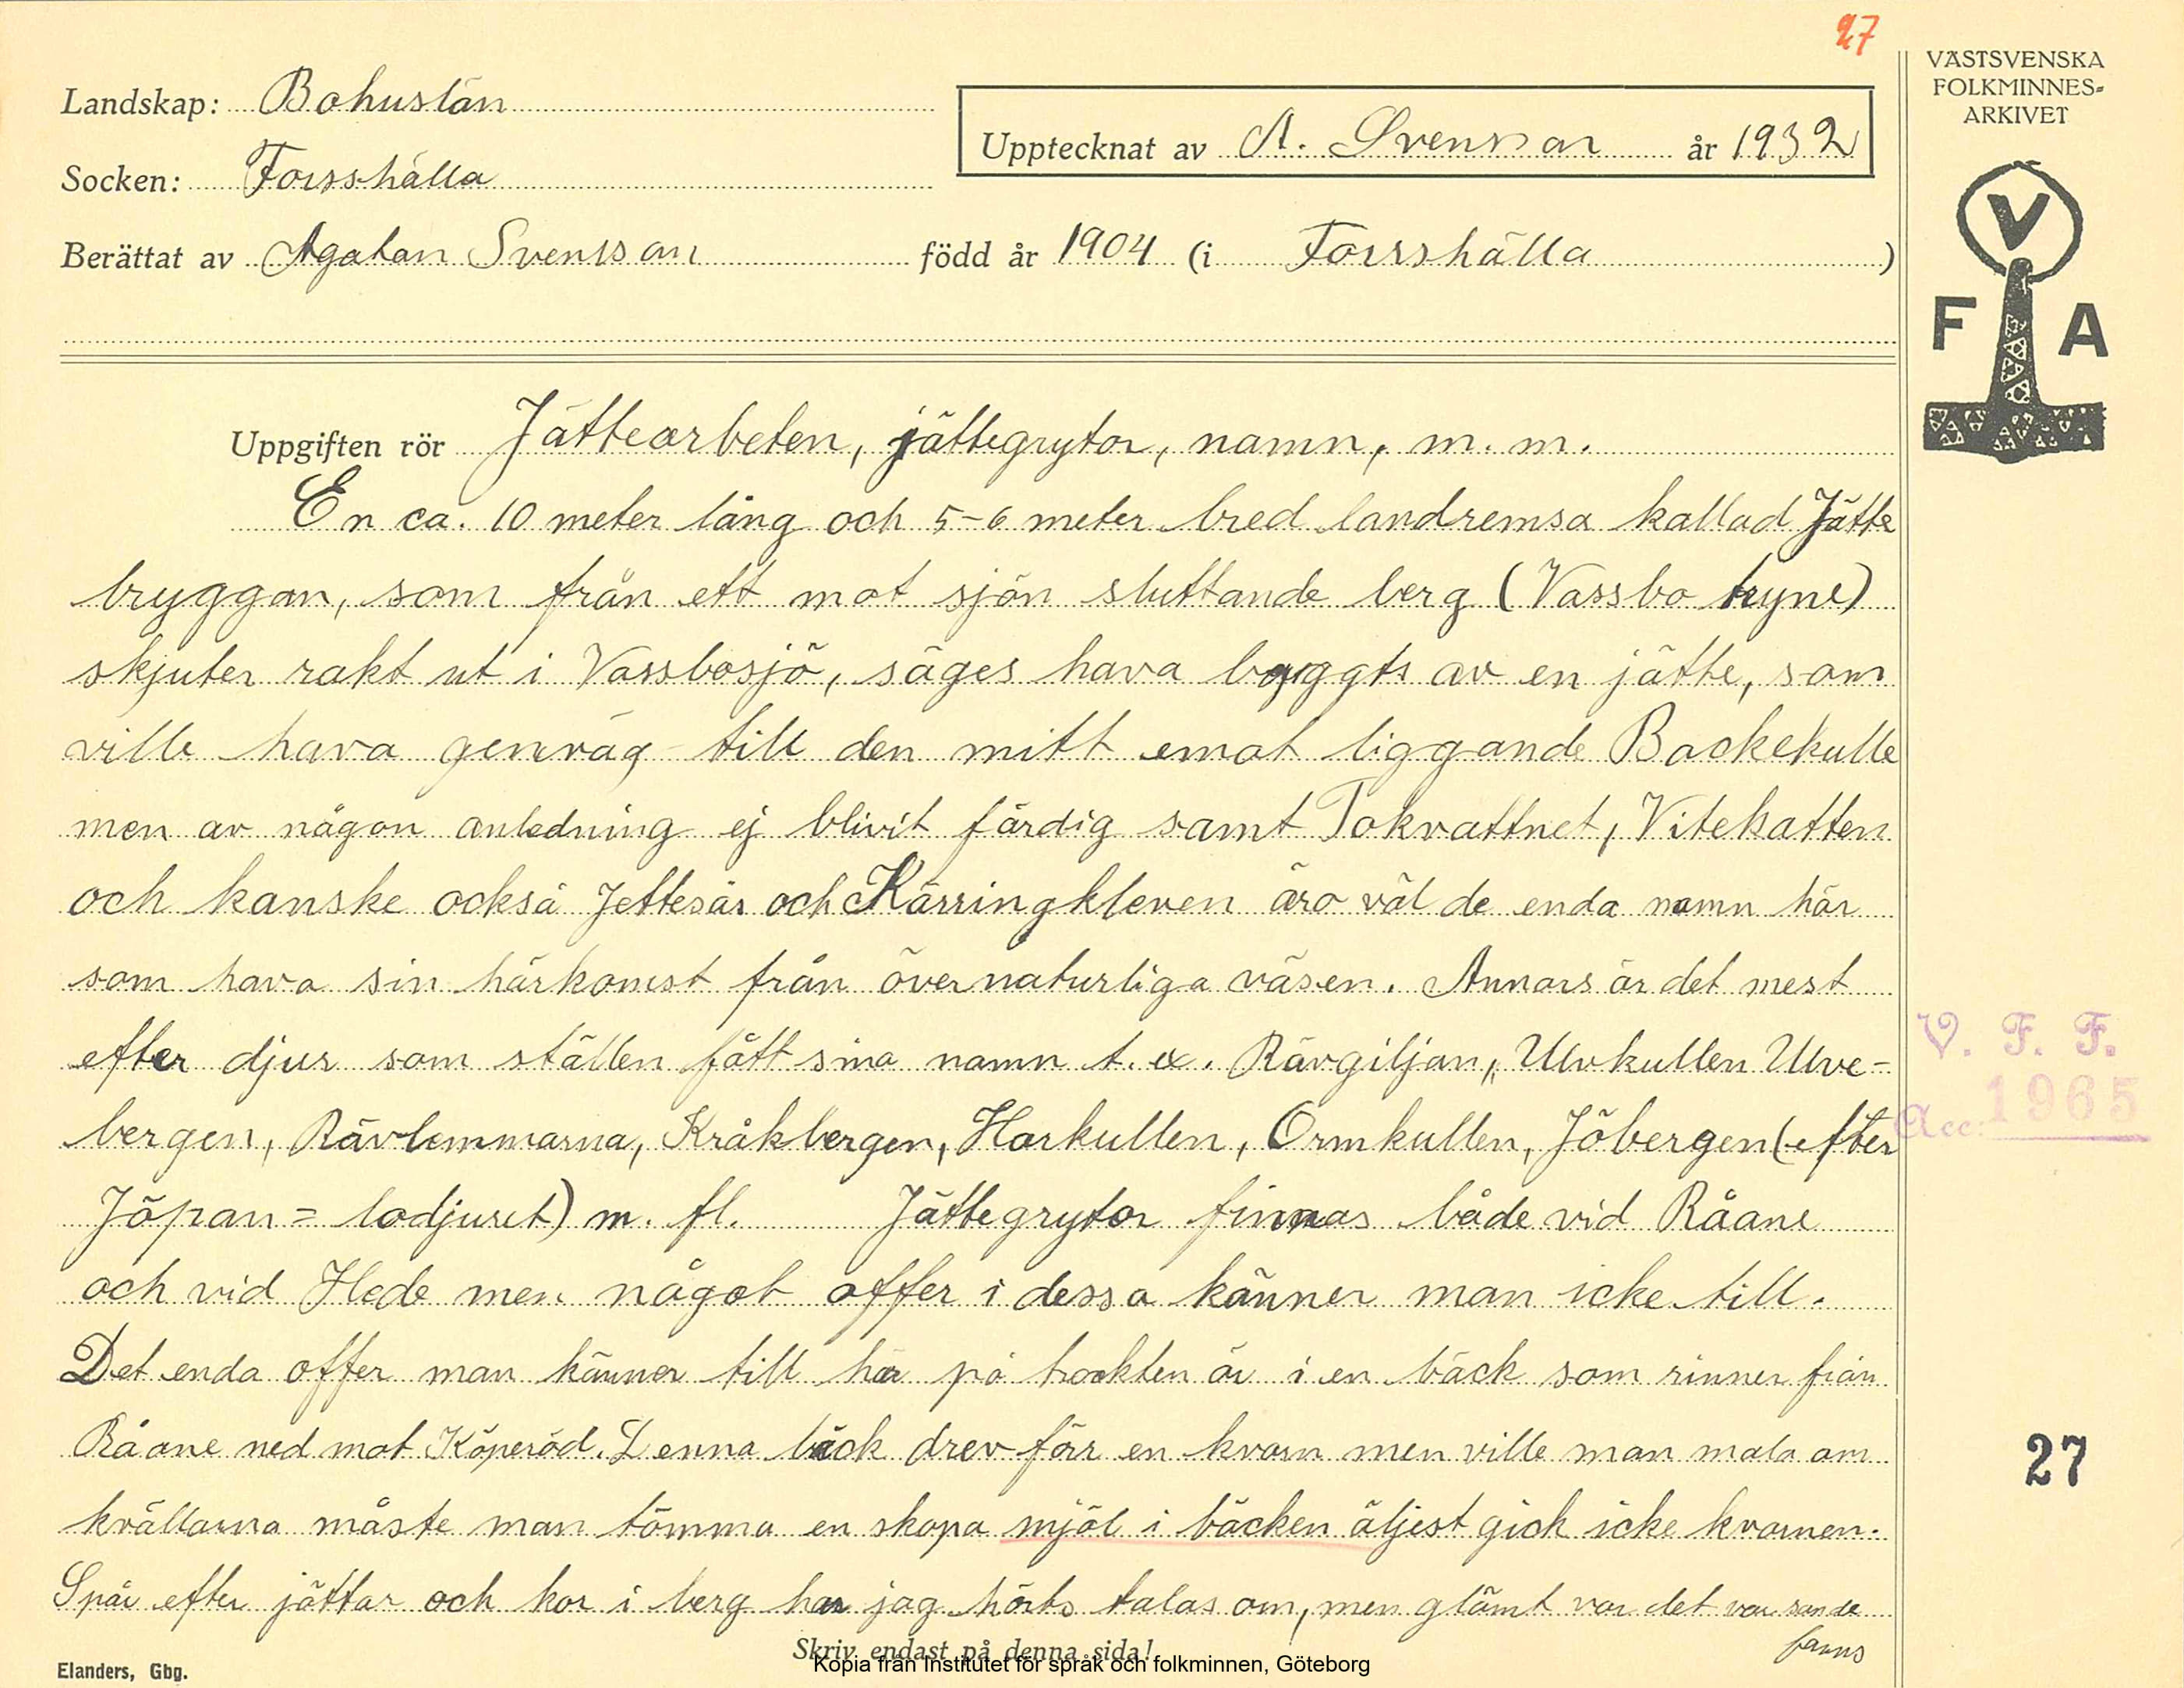 27
VÄSTSVENSKA
FOLKMINNES-
ARKIVET
Landskap: Bohuslän
Upptecknat av A. Svensson år 1932
Socken: Forshälla
Berättat av Agatan Svensson född år 1904 (i Forshälla)
V
F A
Uppgiften rör Jättearbeten, jättegrytor, namn, m. m.
En ca. 10 meter lång och 5-6 meter bred landremsa kallad Jätte
bryggan, som från ett mot sjön sluttande berg (Vassbo hyne)
skjuter rakt ut i Vassbosjö, säges hava byggts av en jätte, som
ville hava genväg till den mitt emot liggande Backekulle
men av någon anledning ej blivit färdig samt Tokvattnet, Vitekatten
och kanske också Jettesås och Kärringkleven äro väl de enda namn här
som hava sin härkomst från övernaturliga väsen. Annars är det mest
efter djur som ställen fått sina namn t. ex. Rävgiljan, Ulvkullen Ulve-
bergen, Rävlemmarna, Kråkbergen, Harkullen, Ormkullen, Jöbergen (efter
Jöpan = lodjuret) m. fl. Jättegrytor finnas både vid Råane
och vid Hede men något offer i dessa känner man icke till.
Det enda offer man känner till här på trakten är i en bäck som rinner från
Råane ned mot Köperöd. Denna bäck drev förr en kvarn men ville man mala om
kvällarna måste man tömma en skopa mjöl i bäcken äljest gick icke kvarnen.
Spår efter jättar och kor i berg har jag hörts talas om, men glömt var det var
fanns
V. F. F.
Acc: 1965
27
Skriv endast på denna sida!
Kopia från Institutet för språk och folkminnen, Göteborg
Elanders, Gbg.